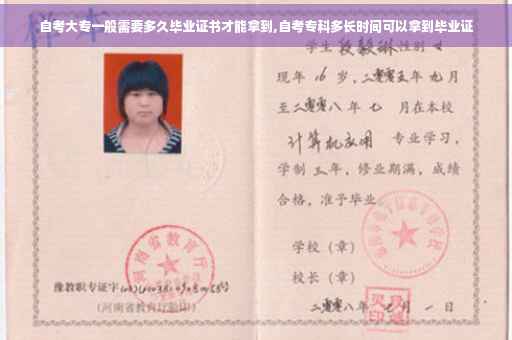 自考大专一般需要多久毕业证书才能拿到,自考专科多长时间可以拿到毕业证
学生 性别 女
现年 16 岁,二零零五年 九月
至二零零八 年 七 月在本校
计算机应用 专业学习,
学制 三 年,修业期满,成绩
合格,准予毕业
学校(章)
校长(章)
二零零八年 七 月 一 日
河南省教育厅
豫教职专证字
(河南省教育厅验印)